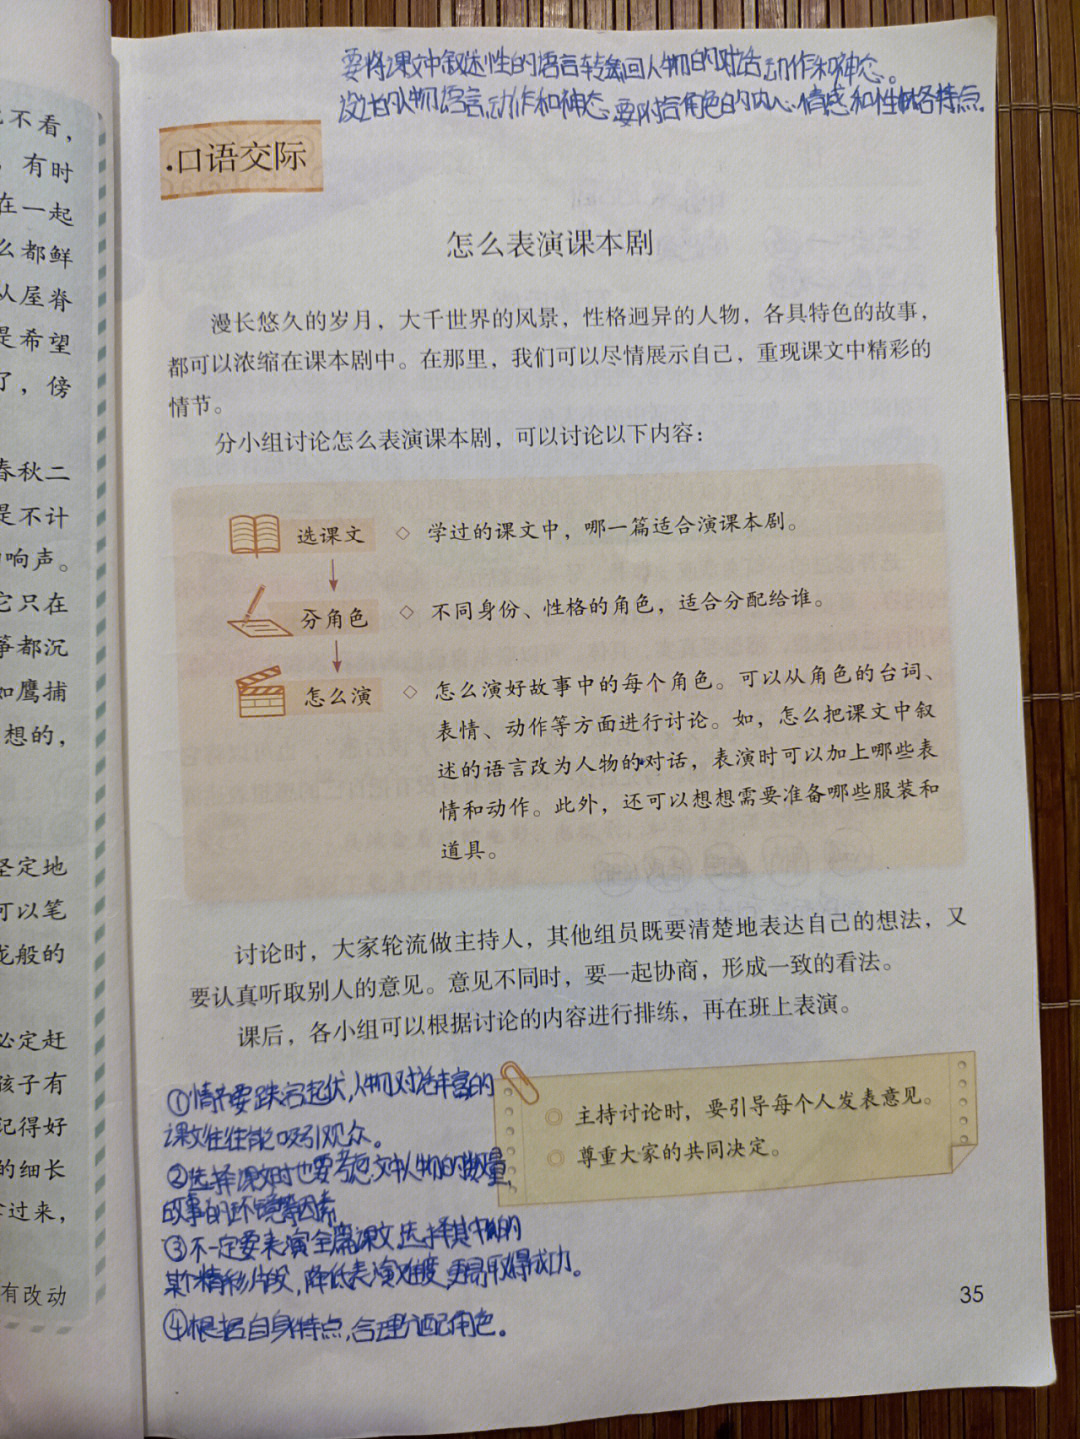 要将课文中叙述性的语言转编回人物的对话动作和神态。
设计的人物语言动作和神态、要附合角色的内心、情感和性格各特点.
口语交际
怎么表演课本剧
漫长悠久的岁月，大千世界的风景，性格迥异的人物，各具特色的故事，
都可以浓缩在课本剧中。在那里，我们可以尽情展示自己，重现课文中精彩的
情节。
分小组讨论怎么表演课本剧，可以讨论以下内容：
选课文 ◇ 学过的课文中，哪一篇适合演课本剧。
分角色 ◇ 不同身份、性格的角色，适合分配给谁。
怎么演 ◇ 怎么演好故事中的每个角色。可以从角色的台词、
表情、动作等方面进行讨论。如，怎么把课文中叙
述的语言改为人物的对话，表演时可以加上哪些表
情和动作。此外，还可以想想需要准备哪些服装和
道具。
讨论时，大家轮流做主持人，其他组员既要清楚地表达自己的想法，又
要认真听取别人的意见。意见不同时，要一起协商，形成一致的看法。
课后，各小组可以根据讨论的内容进行排练，再在班上表演。
主持讨论时，要引导每个人发表意见。
尊重大家的共同决定。
①情节要跌宕起伏,人物对话丰富的
课文往往能吸引观众。
②选择课文时也要考虑文中人物的数量、
故事的环境等因素
③不一定要表演全篇课文,选择其中的
某个精彩片段,降低表演难度,更易取得成功。
④根据自身特点,合理分配角色。
35
己不看，
，有时
在一起
么都鲜
从屋脊
是希望
了，傍
春秋二
是不计
响声。
它只在
筝都沉
如鹰捕
想的，
坚定地
可以笔
龙般的
必定赶
孩子有
记得好
的细长
过来，
有改动